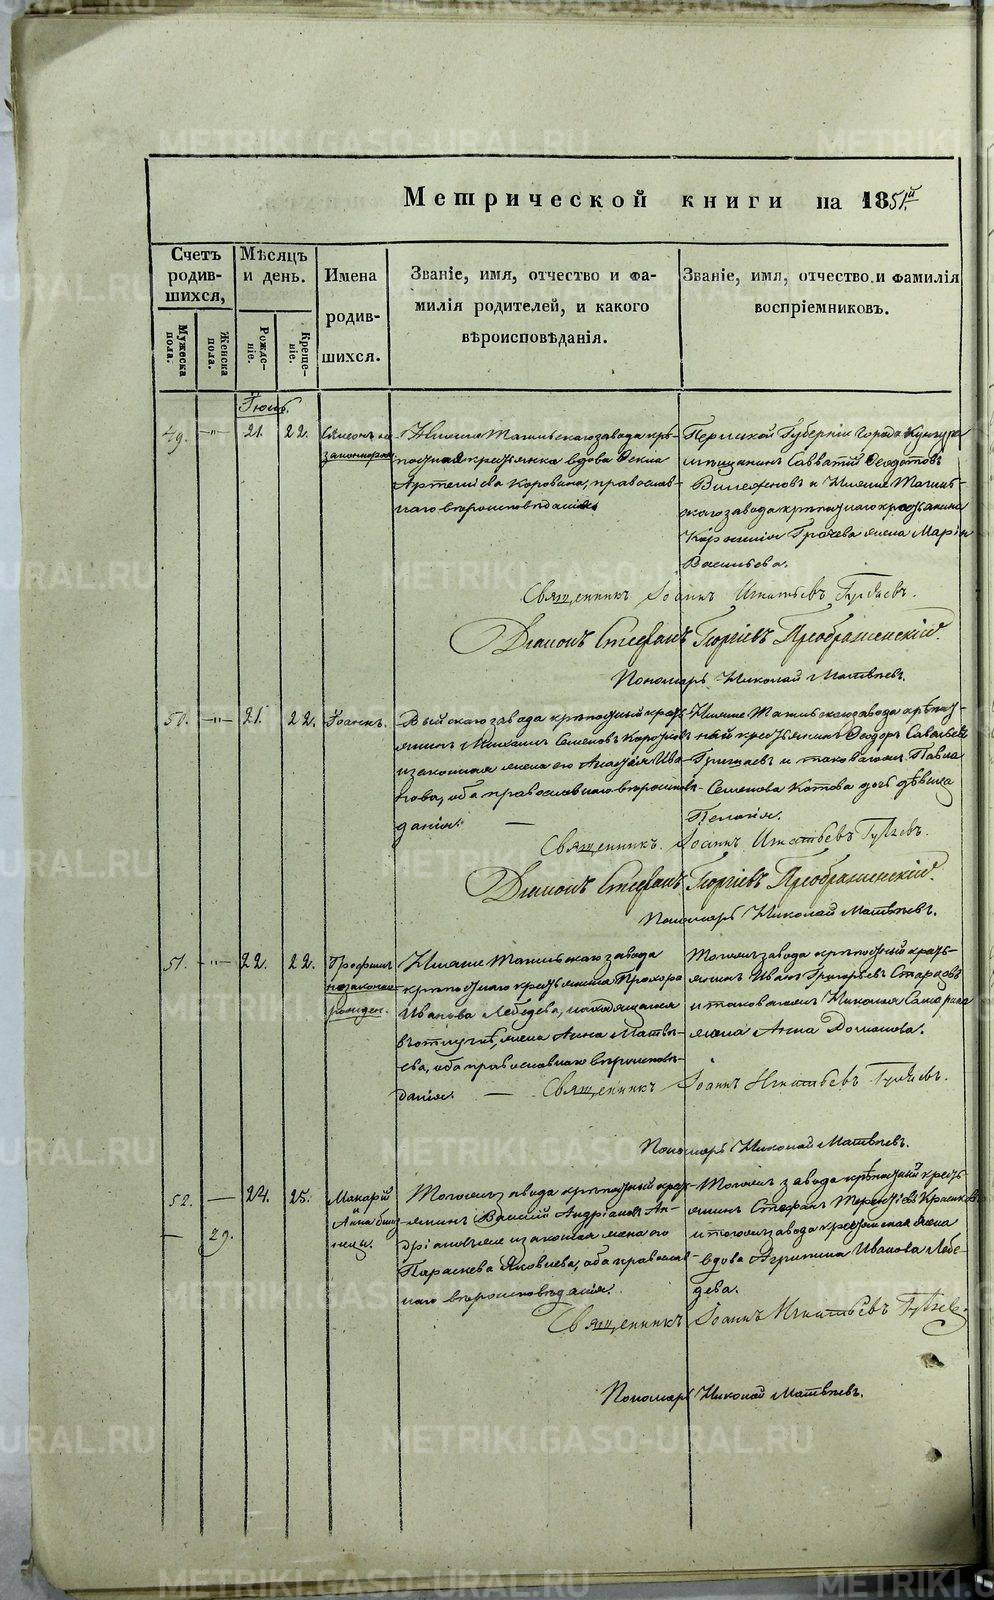 Метрической книги на 1851.й
Счетъ родив- шихся,
Мѣсяцъ и день.
Имена родив- шихся.
Званіе, имя, отчество и фа-
милія родителей, и какого
вѣроисповѣданія.
Званіе, имя, отчество и фамилія
воспріемниковъ.
Мужеска пола.
Женска пола.
Рожде- ніе.
Креще- ніе.
Іюль.
49. —"— 21. 22.
Симеонъ не
законнорож.
Нижне Тагильскаго завода крѣ-
постная крестьянка вдова
Артемьева Коровина, православ-
наго вѣроисповѣданія.
Пермской Губерніи города Кунгура
мѣщанинъ Савватій Ѳедотовъ
и Нижне Тагиль-
скаго завода крѣпостнаго крестьянина
Грачева жена Марія
Васильева.
Священникъ Іоаннъ Игнатьевъ
Діаконъ Стефанъ Георгіевъ Преображенскій.
Пономарь Николай Матвѣевъ.
50. —"— 21. 22.
Іоаннъ.
Выйскаго завода крѣпостный крест-
янинъ Михаилъ Семеновъ
и законная жена его Ива-
нова, оба православнаго вѣроиспов-
данія. —
Нижне Тагильскаго завода крѣпост-
ный крестьянинъ Ѳеодоръ Савельевъ
и таковагожъ Павла
Семенова Котова дочь дѣвица
Пелагія.
Священникъ. Іоаннъ Игнатьевъ
Діаконъ Стефанъ Георгіевъ Преображенскій.
Пономарь Николай Матвѣевъ.
51. —"— 22. 22.
Трофимъ
незаконно
рожден.
Нижне Тагильскаго завода
крѣпостнаго крестьянина Прохора
Иванова Лебедева, находящагося
въ отлучкѣ, жена Анна Матвѣ-
ева, оба православнаго вѣроисповѣ-
данія. —
Тогожъ завода крѣпостный кресть-
янинъ Иванъ Григорьевъ Старцовъ
и таковагожъ Николая
жена Анна
Священникъ Іоаннъ Игнатьевъ
Пономарь Николай Матвѣевъ.
52. — 24. 25.
— 29.
Макарій
и
Анна близ
нецы.
Тогожъ завода крѣпостный крест-
янинъ Василій Андріановъ Ан-
и законная жена его
Параскева Яковлева, оба православ-
наго вѣроисповѣданія.
Тогожъ завода крѣпостный кресть-
янинъ Стефанъ Терентьевъ
и тогожъ завода крестьянская жена
вдова Агрипина Иванова Лебе-
дева.
Священникъ Іоаннъ Игнатьевъ
Пономарь Николай Матвѣевъ.
METRIKI.GASO-URAL.RU